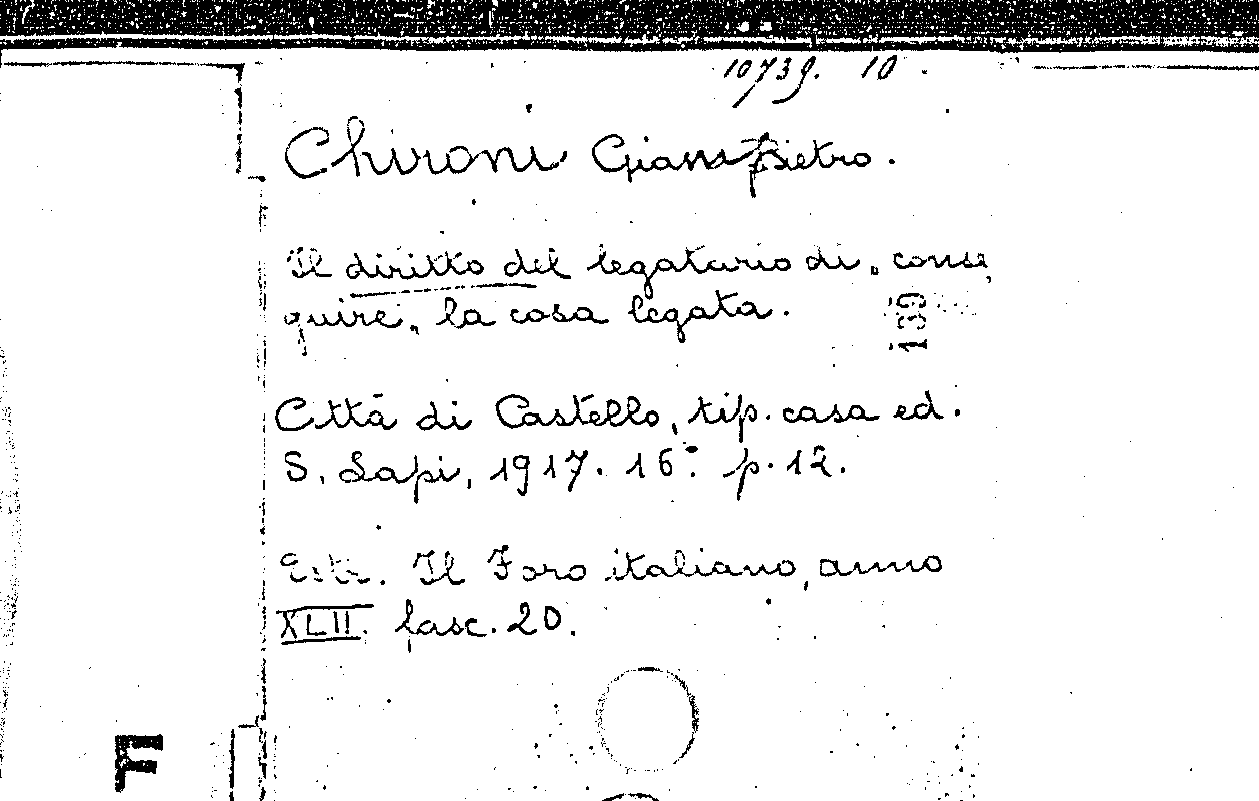 10739. 10.
Chironi Giampietro.
Il diritto del legatario di „conse
guire„ la cosa legata.
139
Città di Castello, tip. casa ed.
S. Lapi, 1917. 16.° p. 12.
Estr. Il Foro italiano, anno
XLII. fasc. 20.
F